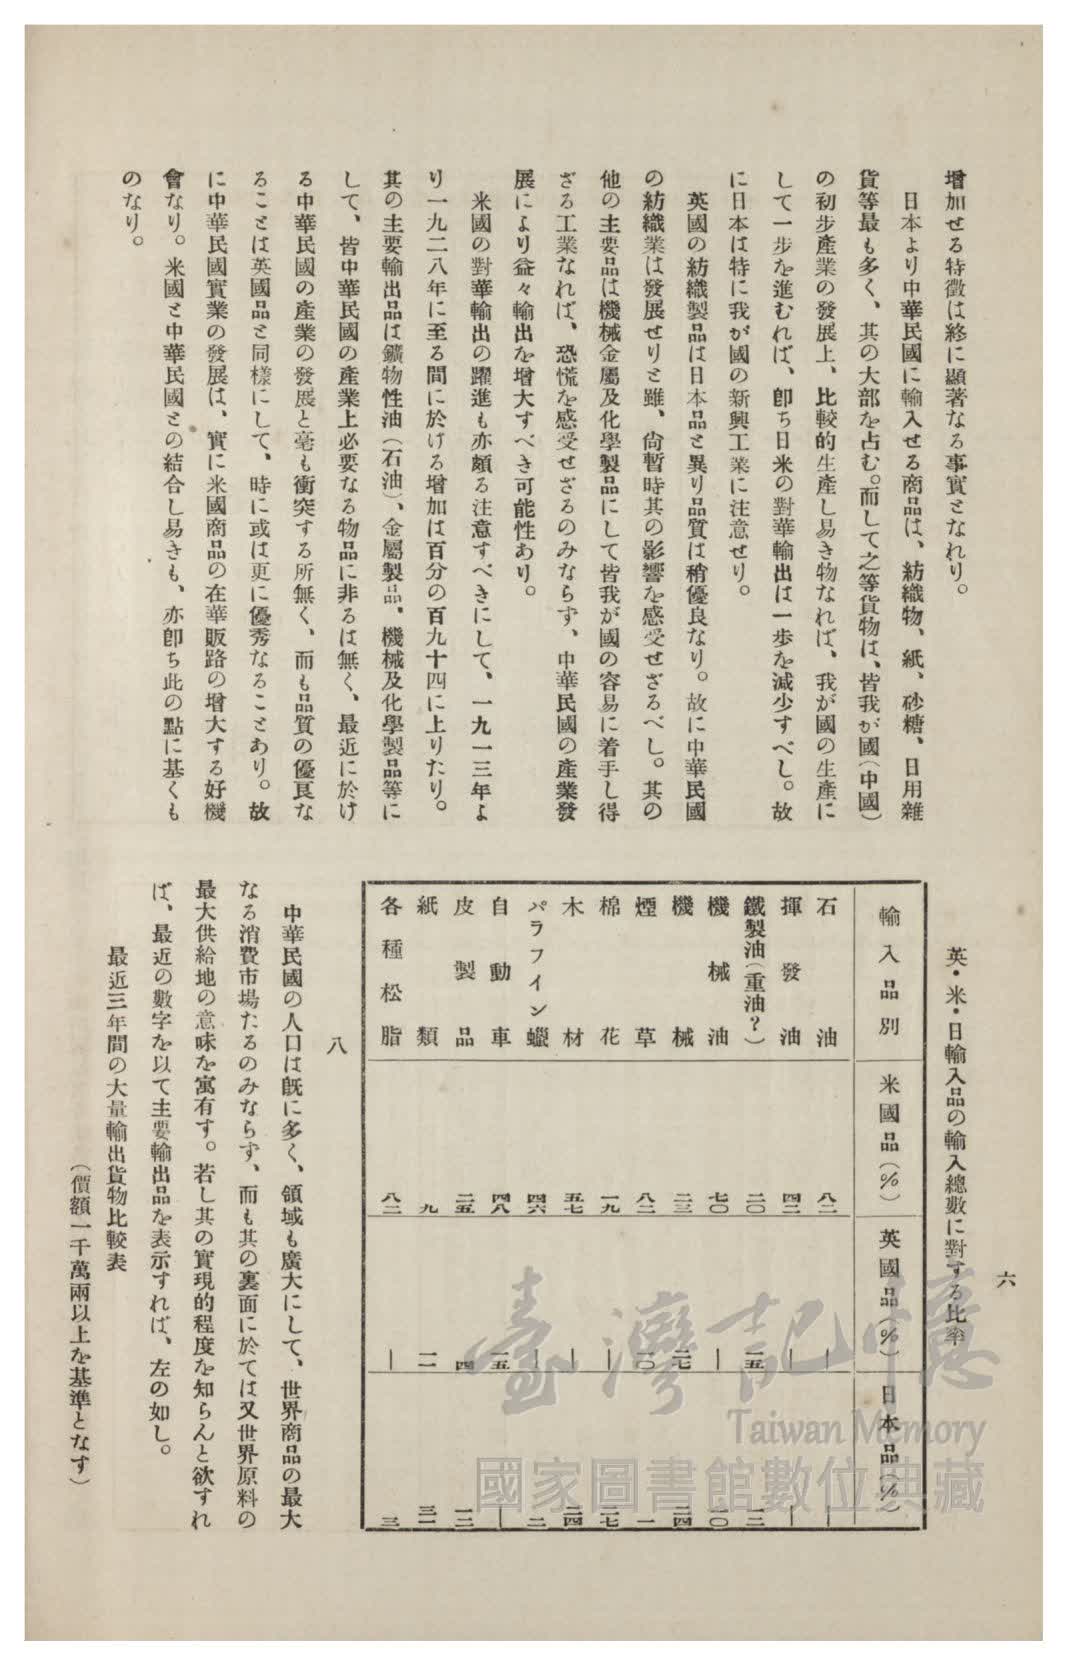 増加せる特徴は終に顯著なる事實となれり。
日本より中華民國に輸入せる商品は、紡織物、紙、砂糖、日用雜
貨等最も多く、其の大部を占む。而して之等貨物は、皆我が國(中國)
の初步產業の發展上、比較的生產し易き物なれば、我が國の生產に
して一步を進むれば、卽ち日米の對華輸出は一歩を減少すべし。故
に日本は特に我が國の新興工業に注意せり。
英國の紡織製品は日本品と異り品質は稍優良なり。故に中華民國
の紡織業は發展せりと雖、尙暫時其の影響を感受せざるべし。其の
他の主要品は機械金屬及化學製品にして皆我が國の容易に着手し得
ざる工業なれば、恐慌を感受せざるのみならず、中華民國の產業發
展により益々輸出を增大すべき可能性あり。
米國の對華輸出の躍進も亦頗る注意すべきにして、一九一三年よ
り一九二八年に至る間に於ける增加は百分の百九十四に上りたり。
其の主要輸出品は鑛物性油(石油)、金屬製品、機械及化學製品等に
して、皆中華民國の產業上必要なる物品に非るは無く、最近に於け
る中華民國の產業の發展と毫も衝突する所無く、而も品質の優良な
ることは英國品と同樣にして、時に或は更に優秀なることあり。故
に中華民國實業の發展は、實に米國商品の在華販路の增大する好機
會なり。米國と中華民國との結合し易きも、亦卽ち此の點に基くも
のなり。
六
英・米・日輸入品の輸入總數に對する比率
輸入品別 米國品(%) 英國品(%) 日本品(%)
石油 八二 ― ―
揮發油 四二 ― ―
鐵製油(重油?) 二〇 二五 一二
機械油 七〇 ― 二〇
機械 二三 二七 二四
煙草 八二 一〇 一
棉花 一九 ― 二七
木材 五七 ― 二四
パラフイン蠟 四六 ― 二
自動車 四八 一五 ―
皮製品 二五 四 一二
紙類 九 一一 三一
各種松脂 八二 ― 三
八
中華民國の人口は旣に多く、領域も廣大にして、世界商品の最大
なる消費市場たるのみならず、而も其の裏面に於ては又世界原料の
最大供給地の意味を寓有す。若し其の實現的程度を知らんと欲すれ
ば、最近の數字を以て主要輸出品を表示すれば、左の如し。
最近三年間の大量輸出貨物比較表
(價額一千萬兩以上を基準となす)
臺灣記憶
Taiwan Memory
國家圖書館數位典藏